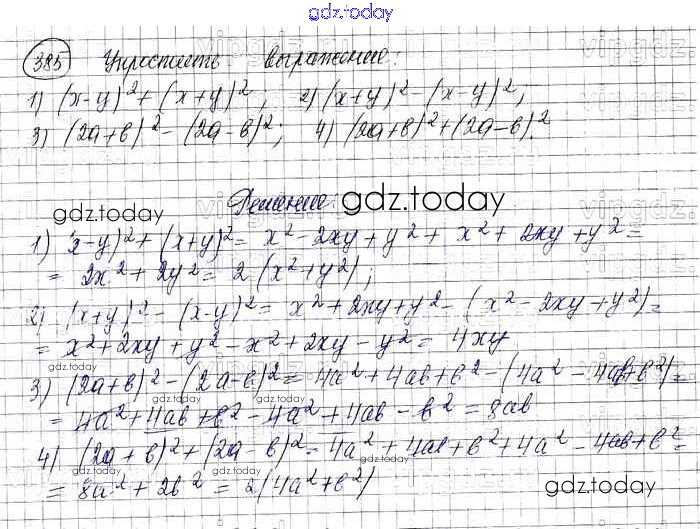 gdz.today
385 Упростить выражение:
1) (x-y)² + (x+y)²; 2) (x+y)² - (x-y)²;
3) (2a+b)² - (2a-b)²; 4) (2a+b)² + (2a-b)².
Решение:
gdz.today
gdz.today
1) (x-y)² + (x+y)² = x² - 2xy + y² + x² + 2xy + y² =
= 2x² + 2y² = 2(x² + y²);
2) (x+y)² - (x-y)² = x² + 2xy + y² - (x² - 2xy + y²) =
= x² + 2xy + y² - x² + 2xy - y² = 4xy
gdz.today
gdz.today
3) (2a+b)² - (2a-b)² = 4a² + 4ab + b² - (4a² - 4ab + b²) =
= 4a² + 4ab + b² - 4a² + 4ab - b² = 8ab
gdz.today
gdz.today
4) (2a+b)² + (2a-b)² = 4a² + 4ab + b² + 4a² - 4ab + b² =
= 8a² + 2b² = 2(4a² + b²)
gdz.today
gdz.today
gdz.today